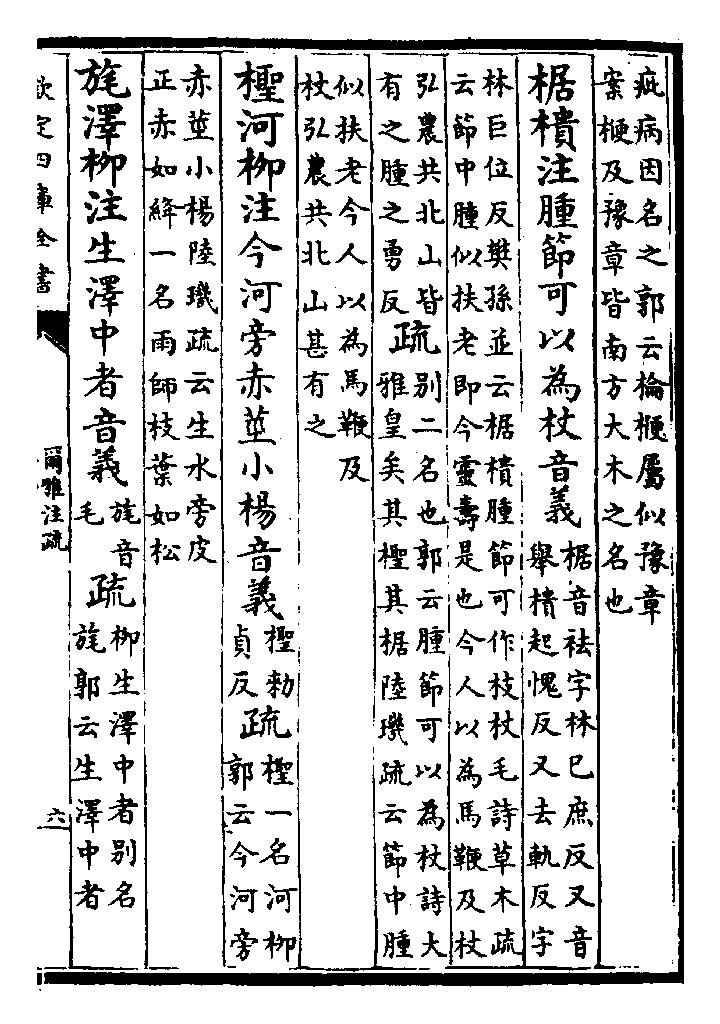 疵病因名之郭云棆楩屬似豫章
案楩及豫章皆南方大木之名也
椐樻注腫節可以為杖音義
椐音祛字林已庶反又音
舉樻起愧反又去軌反字
林巨位反樊孫並云椐樻腫節可作杖杖毛詩草木疏
云節中腫似扶老即今靈壽是也今人以為馬鞭及杖
弘農共北山皆
有之腫之勇反
疏
別二名也郭云腫節可以為杖詩大
雅皇矣其檉其椐陸璣疏云節中腫
似扶老今人以為馬鞭及
杖弘農共北山甚有之
檉河柳注今河旁赤莖小楊音義
檉勑
貞反
疏
檉一名河柳
郭云今河旁
赤莖小楊陸璣疏云生水旁皮
正赤如絳一名雨師枝葉如松
旄澤柳注生澤中者音義
旄音
毛
疏
柳生澤中者別名
旄郭云生澤中者
欽定四庫全書
爾雅注疏
六